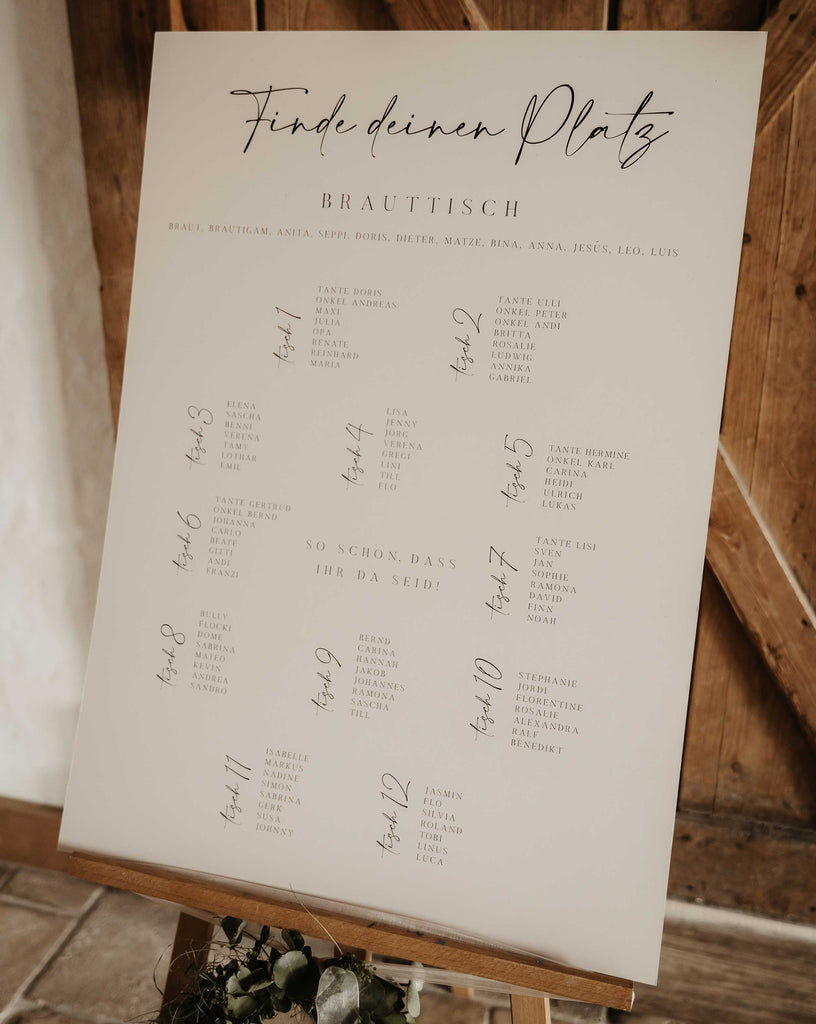 Finde deinen Platz
BRAUTTISCH
BRAUT, BRÄUTIGAM, ANITA, SEPPI, DORIS, DIETER, MATZE, BINA, ANNA, JESÚS, LEO, LUIS
tisch 1
TANTE DORIS
ONKEL ANDREAS
MAXI
JULIA
OPA
RENATE
REINHARD
MARIA
tisch 2
TANTE ULLI
ONKEL PETER
ONKEL ANDI
BRITTA
ROSALIE
LUDWIG
ANNIKA
GABRIEL
tisch 3
ELENA
SASCHA
BENNI
VERENA
TAMY
LOTHAR
EMIL
tisch 4
LISA
JENNY
JÖRG
VERENA
GREGI
LINI
TILL
FLO
tisch 5
TANTE HERMINE
ONKEL KARL
CARINA
HEIDI
ULRICH
LUKAS
tisch 6
TANTE GERTRUD
ONKEL BERND
JOHANNA
CARLO
BEATE
GITTI
ANDI
FRANZI
SO SCHÖN, DASS
IHR DA SEID!
tisch 7
TANTE LISI
SVEN
JAN
SOPHIE
RAMONA
DAVID
FINN
NOAH
tisch 8
BULLY
FLOCKI
DOME
SABRINA
MATEO
KEVIN
ANDREA
SANDRO
tisch 9
BERND
CARINA
HANNAH
JAKOB
JOHANNES
RAMONA
SASCHA
TILL
tisch 10
STEPHANIE
JORDI
FLORENTINE
ROSALIE
ALEXANDRA
RALF
BENEDIKT
tisch 11
ISABELLE
MARKUS
NADINE
SIMON
SABRINA
GERK
SUSA
JOHNNY
tisch 12
JASMIN
FLO
SILVIA
ROLAND
TOBI
LINUS
LUCA